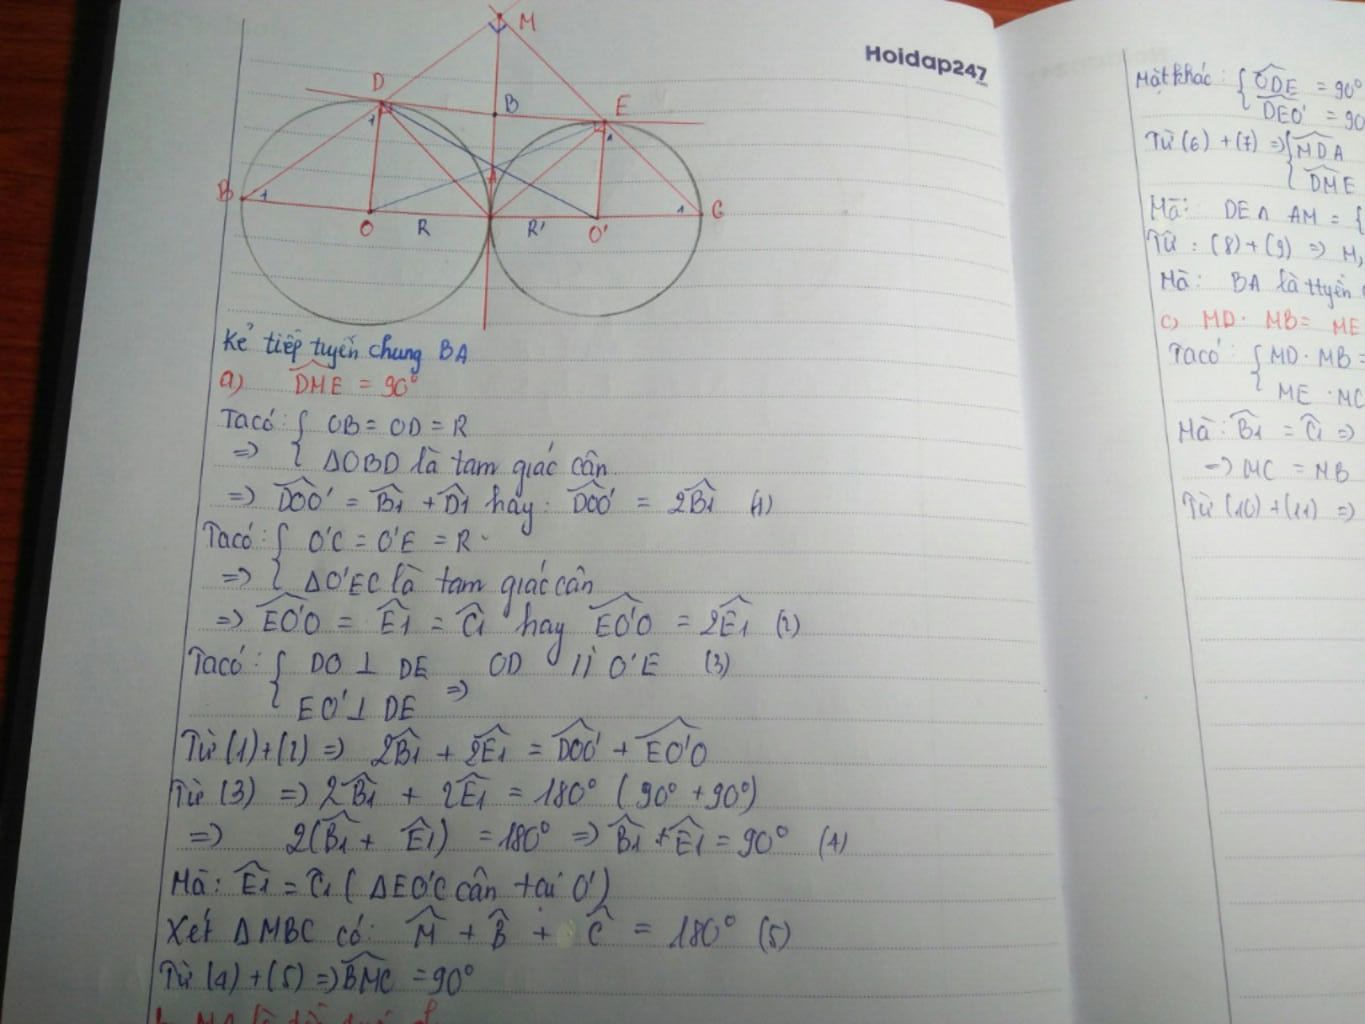 Hoidap247
M
D
B
E
1
1
B
1
A
1
C
O
R
R'
O'
Kẻ tiếp tuyến chung BA
a) DME = 90°
Ta có: { OB = OD = R
=> { ΔOBD là tam giác cân
=> DOO' = B1 + D1 hay: DOO' = 2B1 (1)
Ta có: { O'C = O'E = R
=> { ΔO'EC là tam giác cân
=> EO'O = E1 = C1 hay EO'O = 2E1 (2)
Ta có: { DO ⊥ DE OD // O'E (3)
{ EO' ⊥ DE =>
Từ (1)+(2) => 2B1 + 2E1 = DOO' + EO'O
Từ (3) => 2B1 + 2E1 = 180° (90° + 90°)
=> 2(B1 + E1) = 180° => B1 + E1 = 90° (4)
Mà: E1 = C1 (ΔEO'C cân tại O')
Xét ΔMBC có: M + B + C = 180° (5)
Từ (4)+(5) => BMC = 90°
Mặt khác: { ODE = 90°
{ DEO' = 90
Từ (6)+(7) => { MDA
{ DME
Mà: DE ∩ AM = {
Từ: (8)+(9) => M,
Mà: BA là ttuyến
c) MD. MB = ME
Ta có: { MD. MB =
{ ME. MC
Mà: B1 = C1 =>
=> MC = MB
Từ (10)+(11) =>